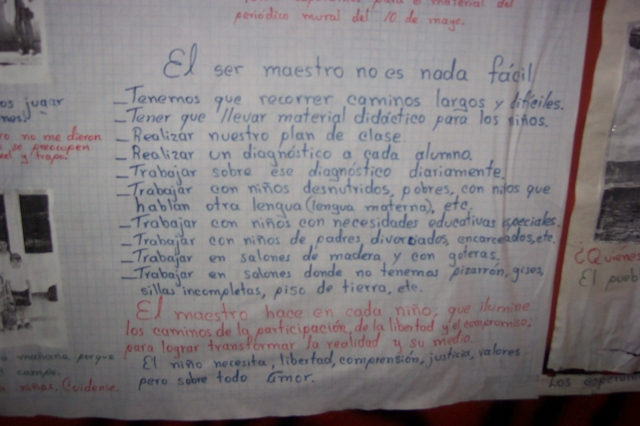 material del
periódico mural del 10 de mayo.
El ser maestro no es nada fácil
_Tenemos que recorrer caminos largos y difíciles.
_Tener que llevar material didáctico para los niños.
_Realizar nuestro plan de clase.
_Realizar un diagnóstico a cada alumno.
_Trabajar sobre ese diagnóstico diariamente.
_Trabajar con niños desnutridos, pobres, con niños que
hablan otra lengua (lengua materna), etc.
_Trabajar con niños con necesidades educativas especiales.
_Trabajar con niños de padres divorciados, encarcelados, etc.
_Trabajar en salones de madera y con goteras.
_Trabajar en salones donde no tenemos pizarrón, gises,
sillas incompletas, piso de tierra, etc.
El maestro hace en cada niño; que ilumine
los caminos de la participación, de la libertad y el compromiso;
para lograr transformar la realidad y su medio.
El niño necesita, libertad, comprensión, justicia, valores
pero sobre todo Amor.
os jugar
no me dieron
se preocupen
y trapo.
mañana porque
campo.
niñas. Cuidense.
¿Quienes
El pueb
Los